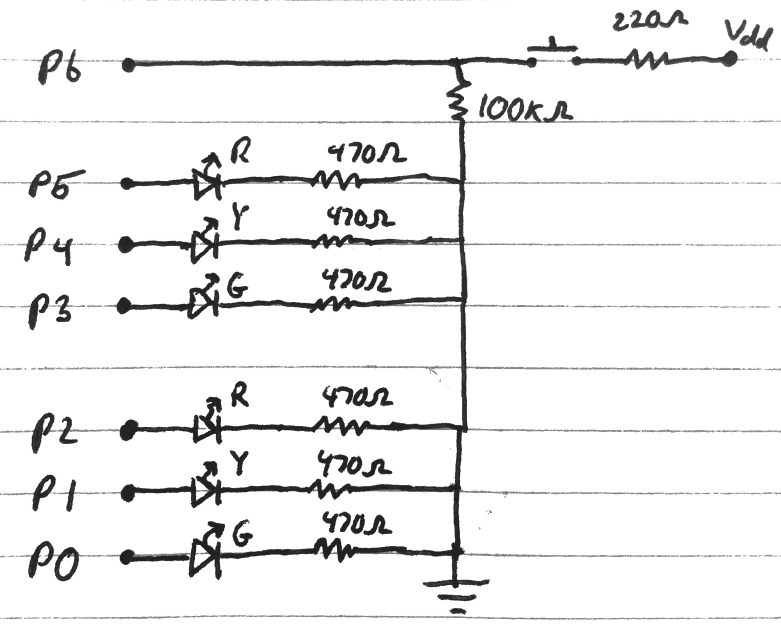 220Ω Vdd
P6
100KΩ
P5 R 470Ω
P4 Y 470Ω
P3 G 470Ω
P2 R 470Ω
P1 Y 470Ω
P0 G 470Ω